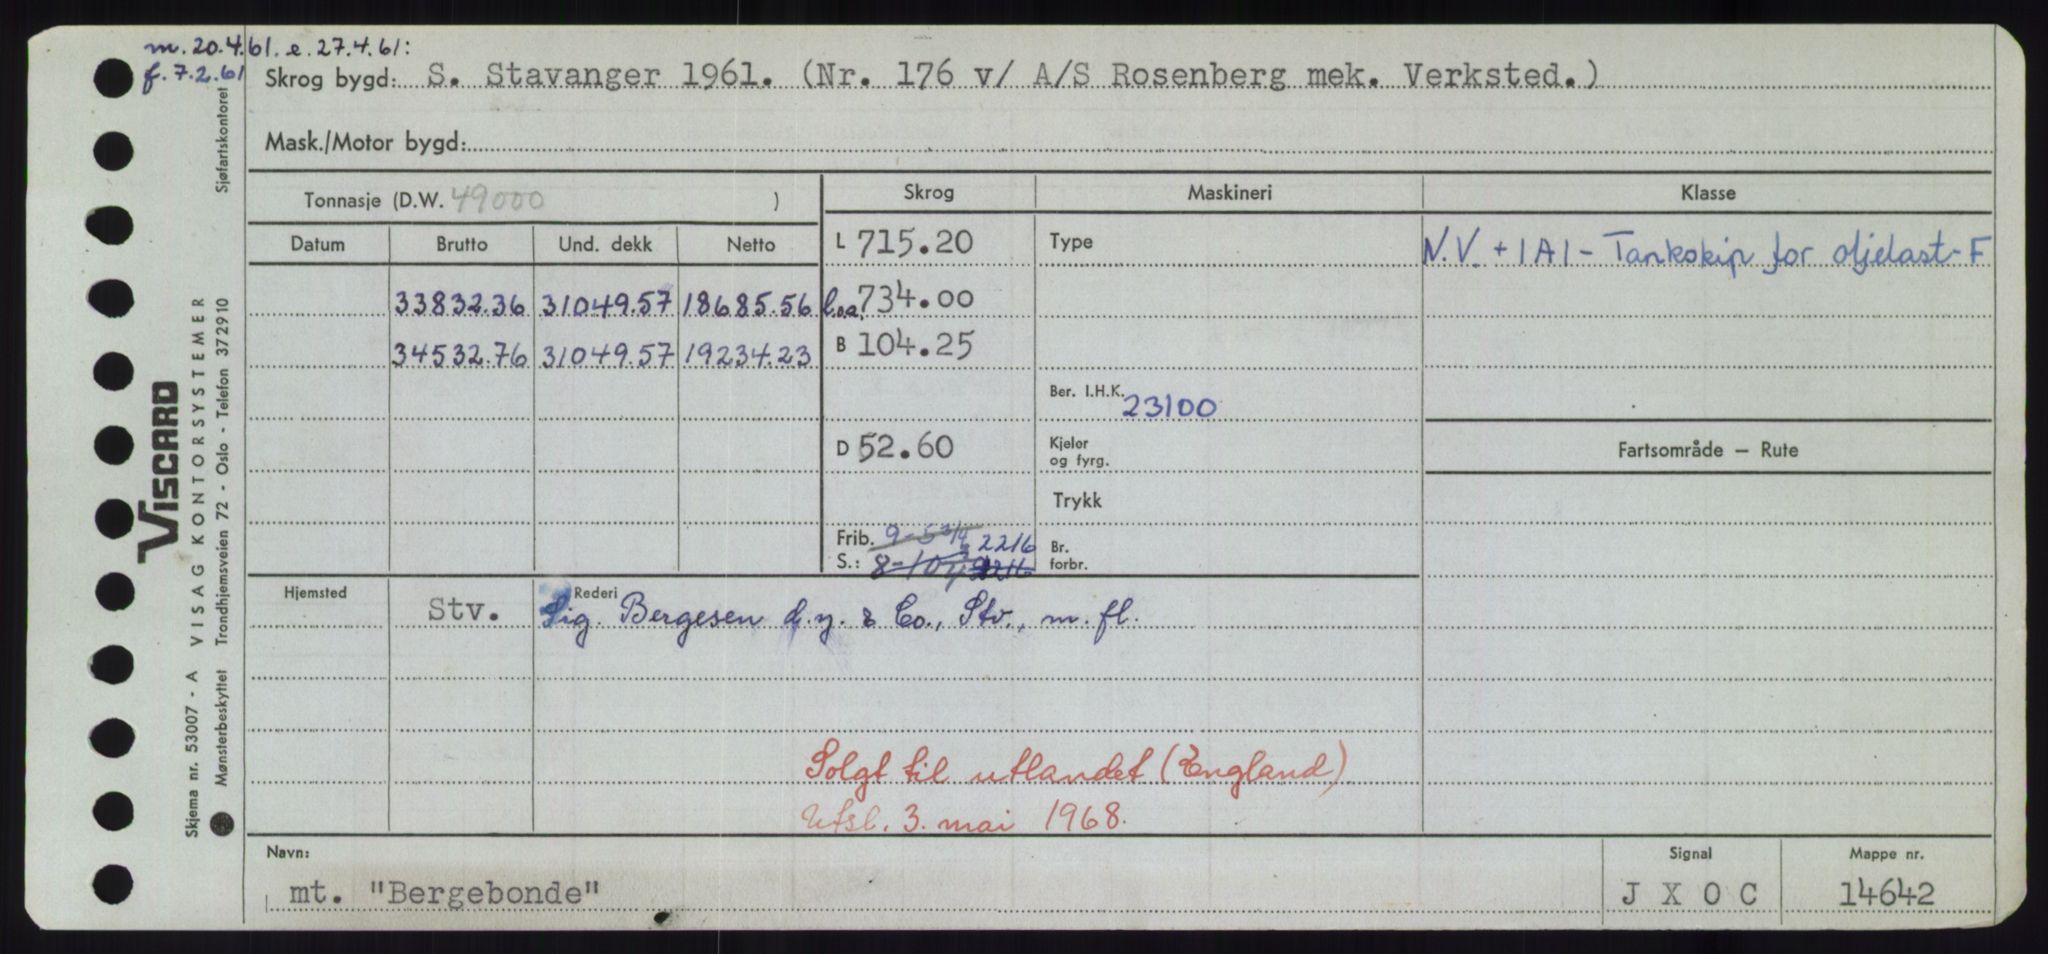 m. 20.4.61. e. 27.4.61:
f. 7.2.61
Skrog bygd: S. Stavanger 1961. (Nr. 176 v/ A/S Rosenberg mek. Verksted.)
Mask./Motor bygd:
Tonnasje (D.W. 49000 )
Skrog Maskineri Klasse
Datum Brutto Und. dekk Netto
L 715.20 Type N.V. + 1A1 - Tankskip for oljelast - F
33832.36 31049.57 18685.56 l.o.a. 734.00
34532.76 31049.57 19234.23 B 104.25
Ber. I.H.K. 23100
D 52.60 Kjeler og fyrg. Fartsområde – Rute
Trykk
Frib. 9-5 3/4 2216 Br. forbr.
S.: 8-10 2216
Hjemsted Rederi
Stv. Sig. Bergesen d.y. & Co., Stv., m. fl.
Solgt til utlandet (England)
Utsl. 3. mai 1968.
Navn: mt. "Bergebonde"
Signal J X O C
Mappe nr. 14642
Sjøfartskontoret
VISCARD
VISAG KONTORSYSTEMER
Trondhjemsveien 72 - Oslo - Telefon 372910
Skjema nr. 53007 - A
Mønsterbeskyttet